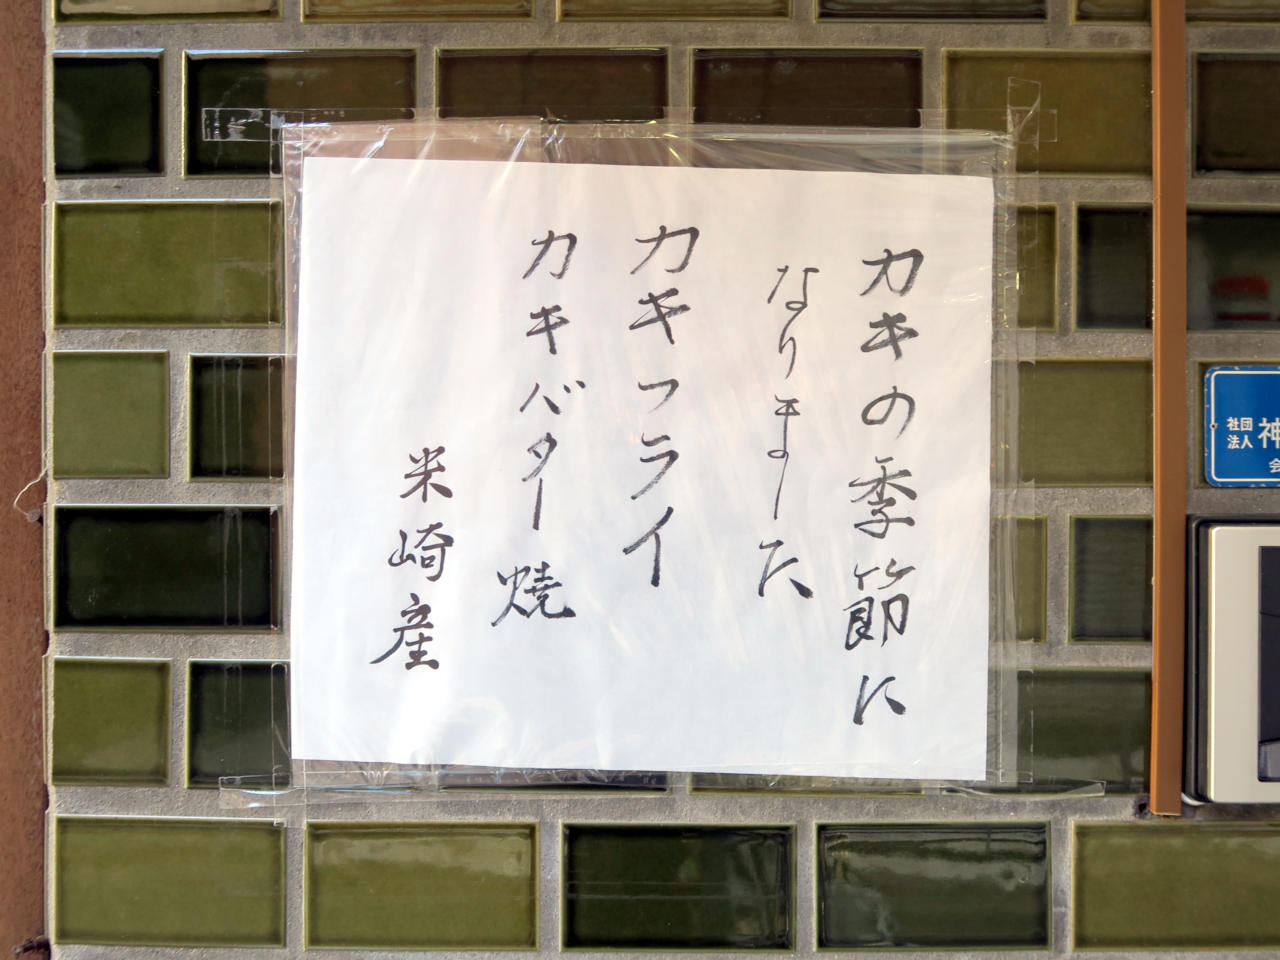 カキの季節に
なりました
カキフライ
カキバター焼
米崎産
社団
法人
神
会